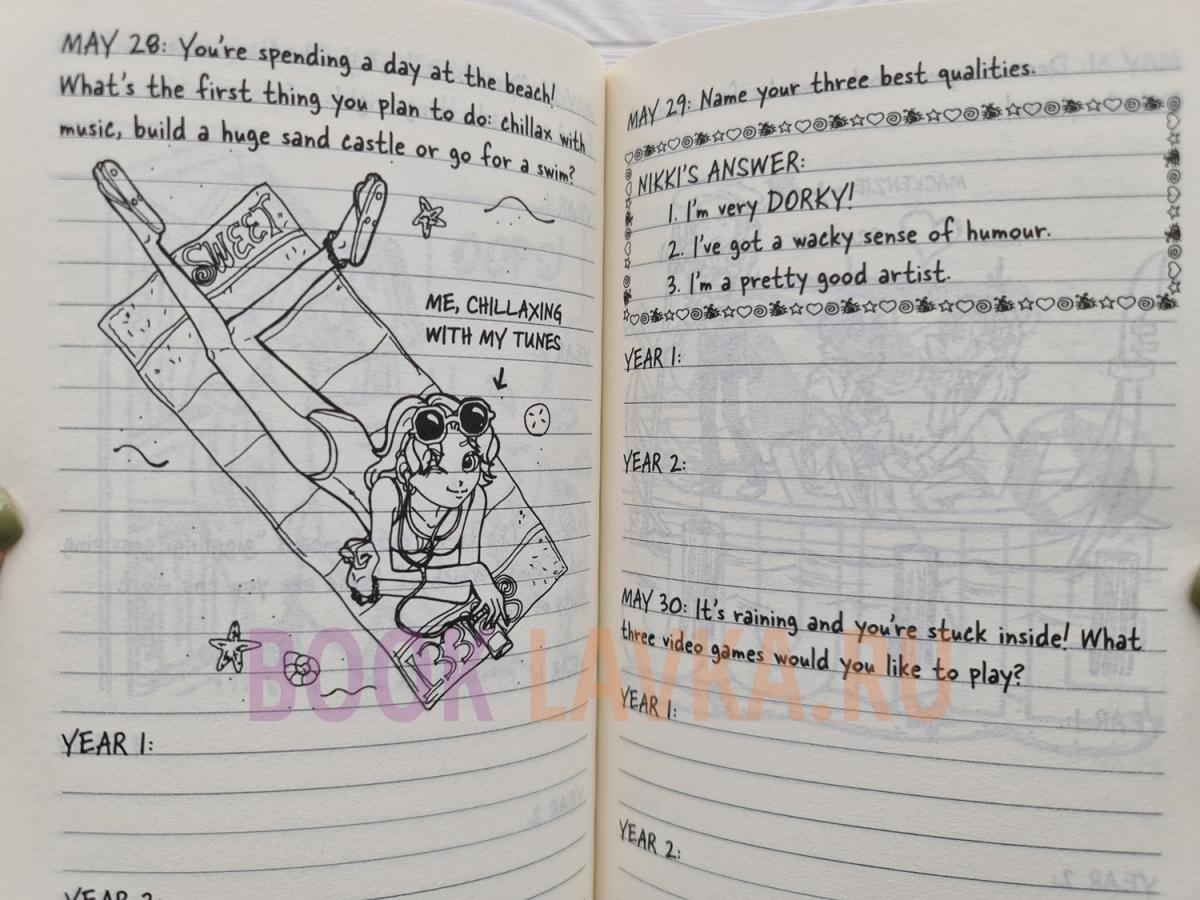 MAY 28: You're spending a day at the beach!
What's the first thing you plan to do: chillax with
music, build a huge sand castle or go for a swim?
SWEET
ME, CHILLAXING
WITH MY TUNES
YEAR 1:
YEAR 2:
MAY 29: Name your three best qualities.
NIKKI'S ANSWER:
1. I'm very DORKY!
2. I've got a wacky sense of humour.
3. I'm a pretty good artist.
YEAR 1:
YEAR 2:
MAY 30: It's raining and you're stuck inside! What
three video games would you like to play?
YEAR 1:
YEAR 2:
BOOK LAVKA.RU